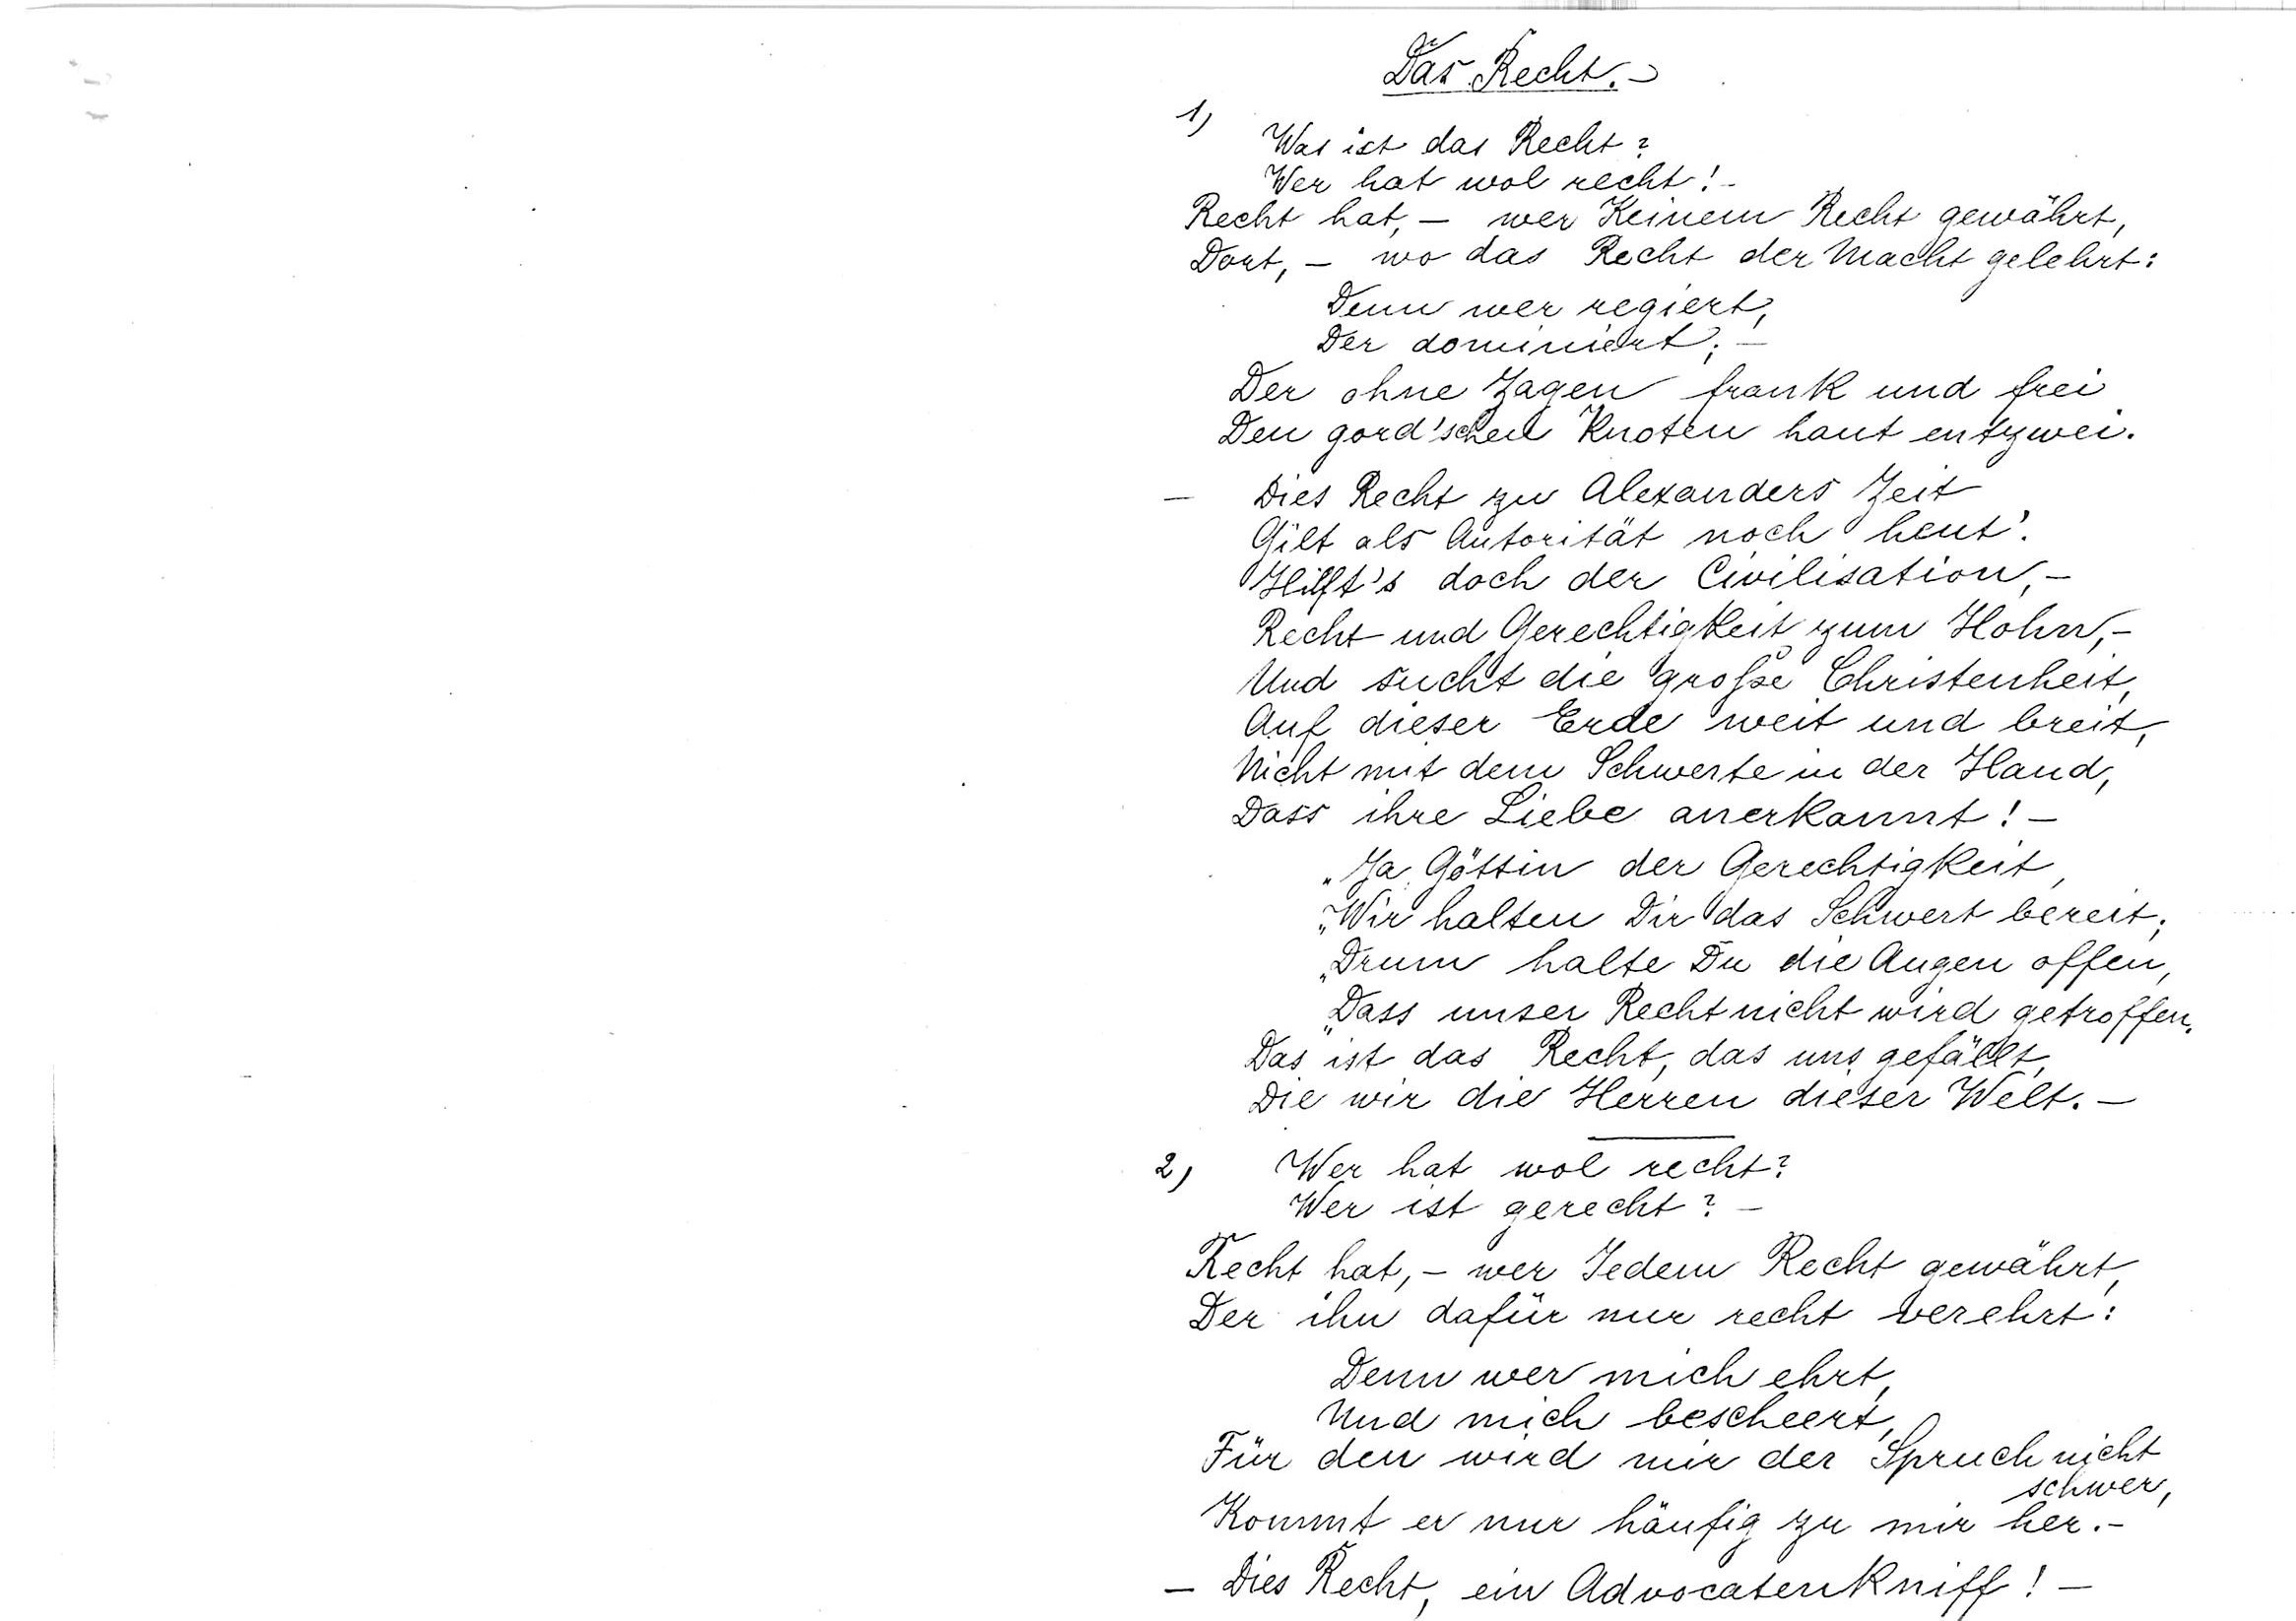 Das Recht.-
1)
Was ist das Recht?
Wer hat wol recht!-
Recht hat, - wer Keinem Recht gewährt,
Dort, - wo das Recht der Macht gelehrt:
Denn wer regiert,
Der dominiert; -
Der ohne Zagen frank und frei
Den gord'schen Knoten haut entzwei.
- Dies Recht zu Alexanders Zeit
Gilt als Autorität noch heut'.
Hilft's doch der Civilisation,-
Recht und Gerechtigkeit zum Hohn,-
Und sucht die große Christenheit,
Auf dieser Erde weit und breit,
Nicht mit dem Schwerte in der Hand,
Dass ihre Liebe anerkannt! -
„Ja, Göttin der Gerechtigkeit,
„Wir halten Dir das Schwert bereit;
„Drum halte Du die Augen offen,
„Dass unser Recht nicht wird getroffen.
Das ist das Recht, das uns gefällt,
Die wir die Herren dieser Welt. -
2) Wer hat wol recht?
Wer ist gerecht? -
Recht hat, - wer Jedem Recht gewährt,
Der ihn dafür nur recht verehrt:
Denn wer mich ehrt,
Und mich bescheert,
Für den wird mir der Spruch nicht
schwer,
Kommt er nur häufig zu mir her.-
- Dies Recht, ein Advocatenkniff! -